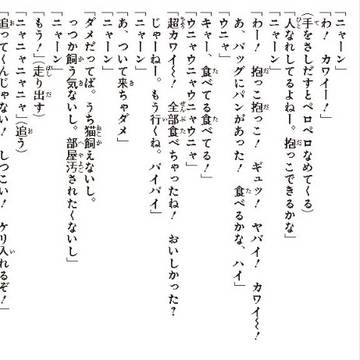 「ニャーン」
「わ！　カワイー！」
（手をさしだすとペロペロなめてくる）
「人なれしてるよねー。抱っこできるかな」
「ニャーン」
「わー！　抱っこ抱っこ！　ギュッ！　ヤバイ！　カワイ〜！
あ、バッグにパンがあった！　食べるかな、ハイ」
「ウニャウニャウニャウニャ」
「キャー、食べてる食べてる！」
「ウニャウニャウニャウニャ」
「超カワイ〜！　全部食べちゃったね！　おいしかった？
じゃーねー。もう行くね。バイバイ」
「ニャーン」
「あ、ついて来ちゃダメ」
「ニャーン」
「ダメだってば。うち猫飼えないし。
っつか飼う気ないし。部屋汚されたくないし」
「ニャーン」
「もう！」（走り出す）
「ニャニャニャニャ」（追う）
「追ってくんじゃない！　しつこい！　ケリ入れるぞ！」